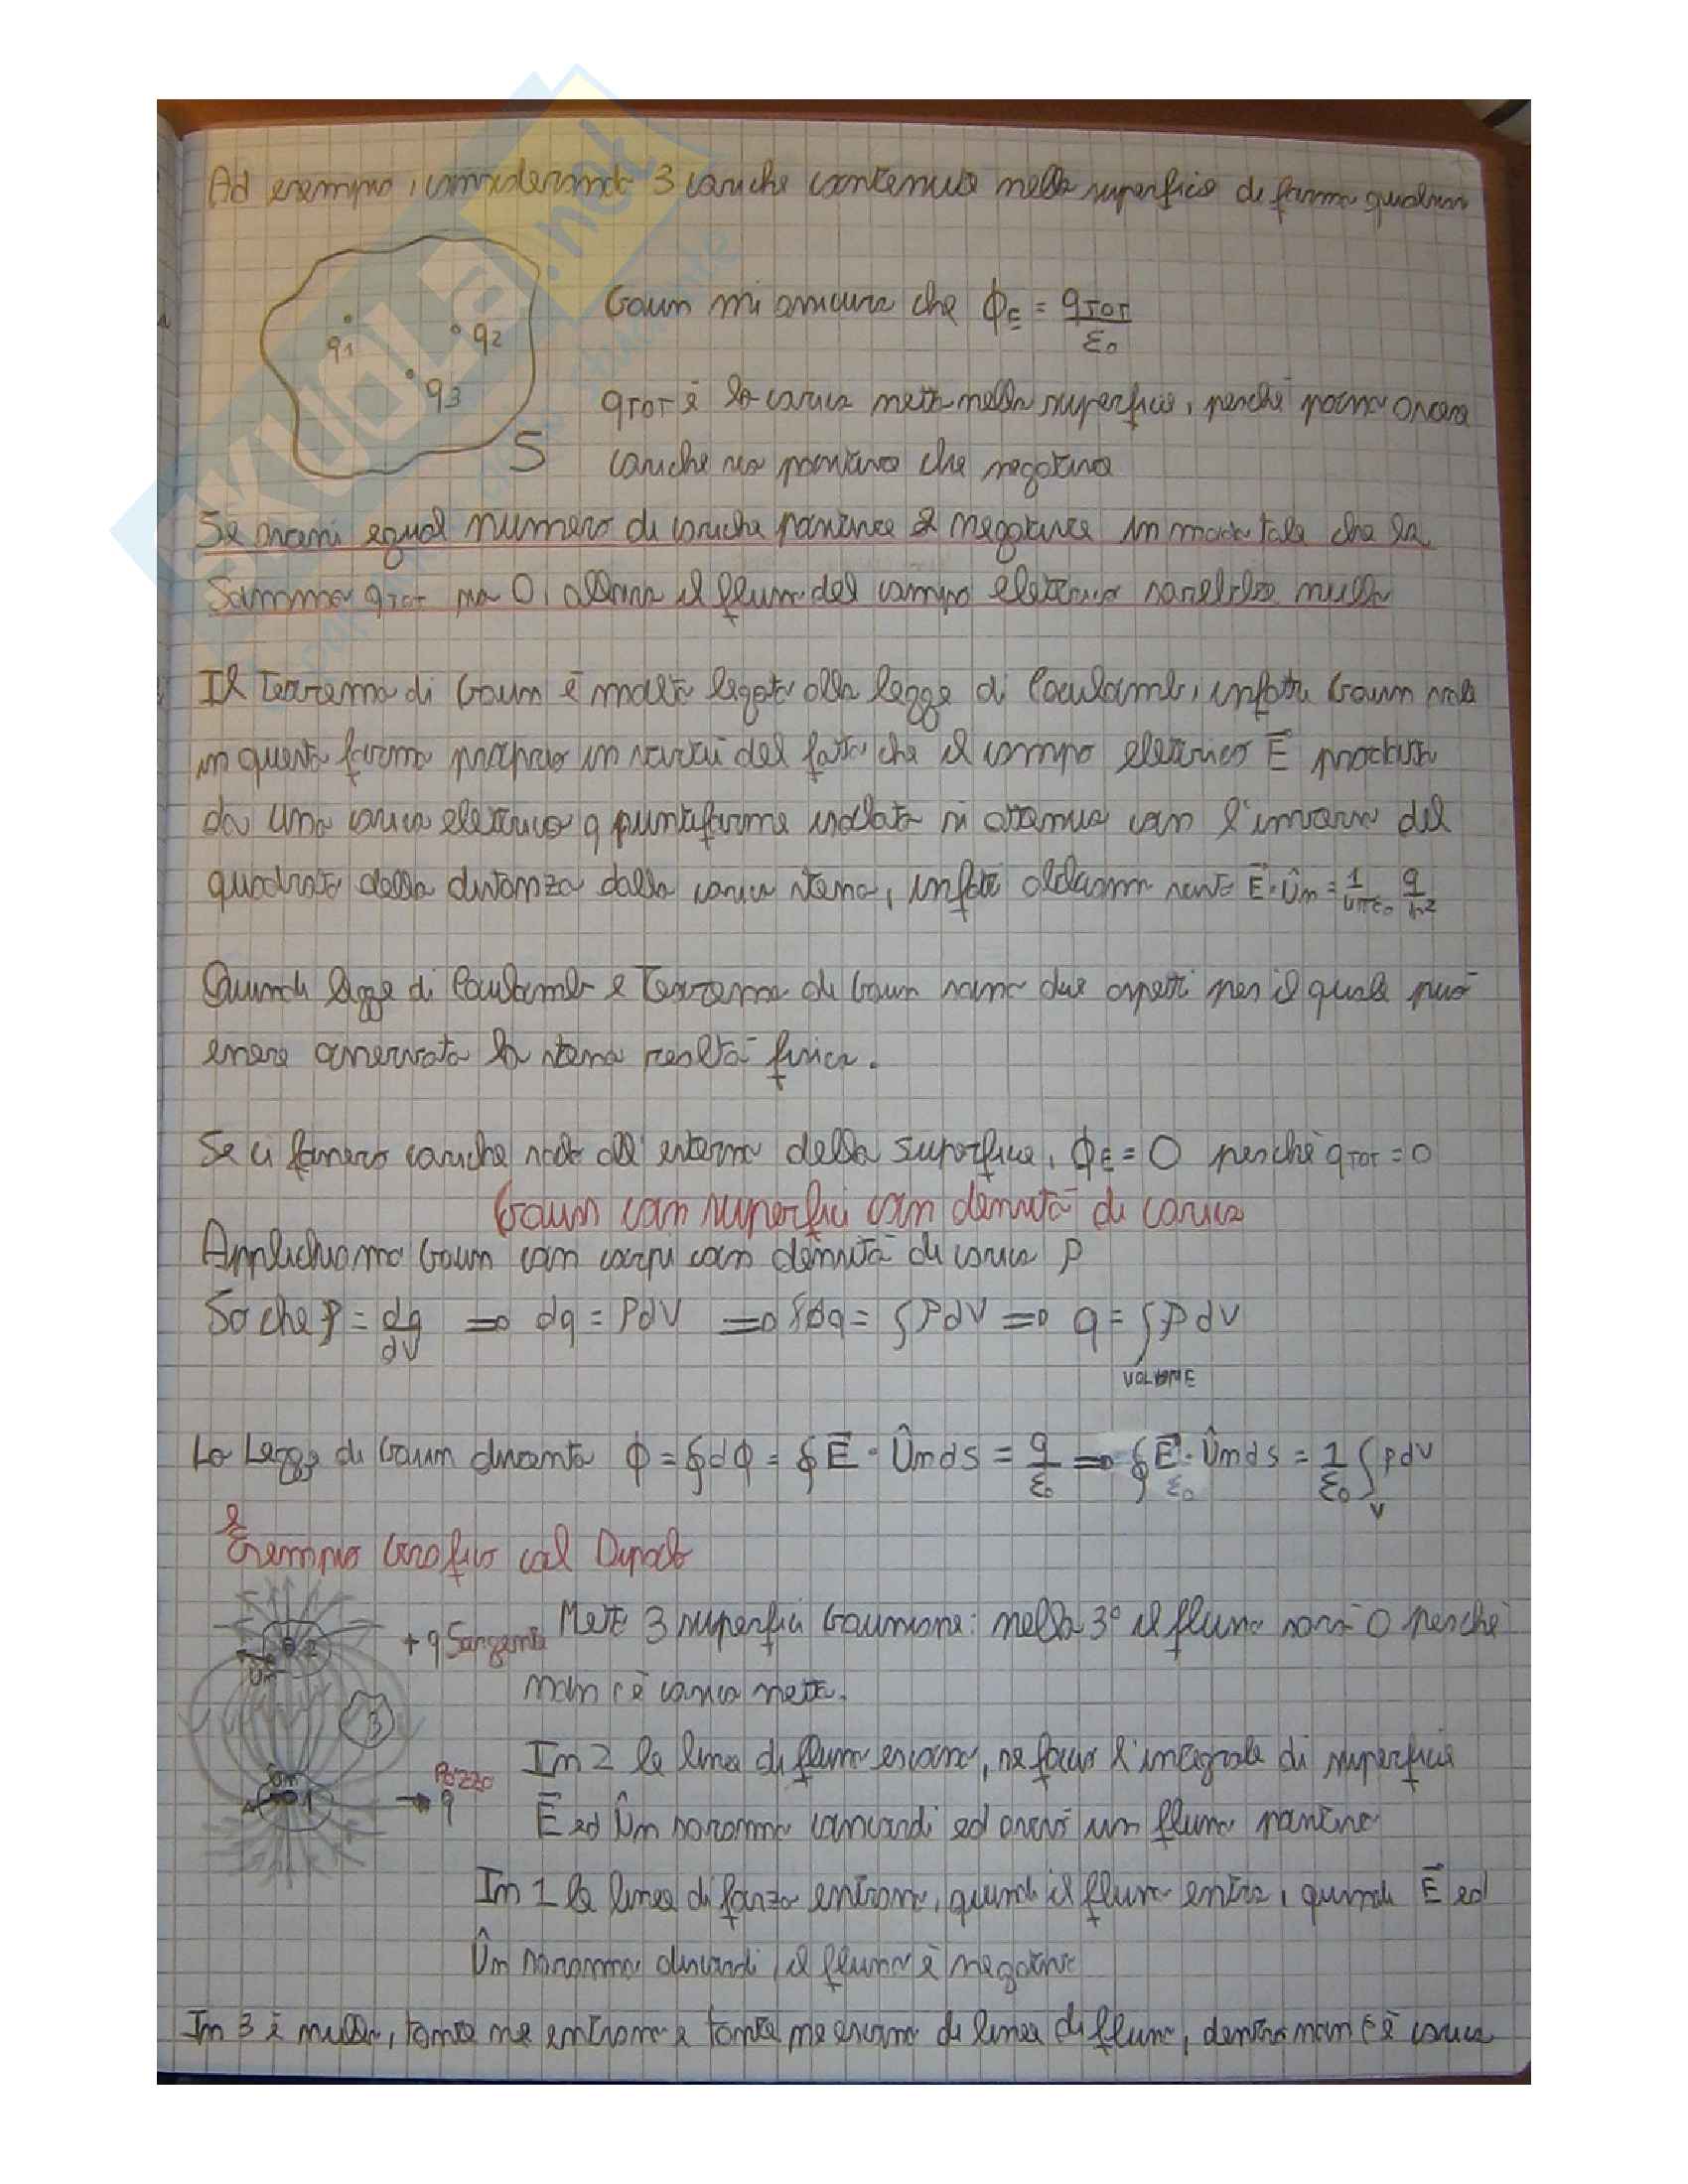 Ad esempio, considerando 3 cariche contenute nella superficie di forma qualsiasi
q1
q2
q3
S
Gauss mi assicura che ϕE = qTOT / ε0
qTOT è la carica netta nella superficie, perché posso avere
cariche sia positive che negative
Se avessi egual numero di cariche positive e negative in modo tale che la
Somma qTOT sia 0, allora il flusso del campo elettrico sarebbe nullo
Il Teorema di Gauss è molto legato alla legge di Coulomb, infatti Gauss vale
in questa forma proprio in virtù del fatto che il campo elettrico E⃗ prodotto
da una carica elettrica q puntiforme isolata si attenua con l'inverso del
quadrato della distanza dalla carica stessa, infatti abbiamo visto E⃗·Ûn = 1/4πε0 q/r²
Quindi legge di Coulomb e Teorema di Gauss sono due aspetti per il quale può
essere osservata la stessa realtà fisica.
Se ci fossero cariche solo all'esterno della superficie, ϕE = 0 perché qTOT = 0
Gauss con superfici con densità di carica
Applichiamo Gauss con corpi con densità di carica ρ
So che ρ = dq/dV ⇒ dq = ρdV ⇒ ∫dq = ∫ρdV ⇒ q = ∫ρdV
VOLUME
La Legge di Gauss diventa ϕ = ∮dϕ = ∮E⃗·Ûnds = q/ε0 ⇒ ∮E⃗·Ûnds = 1/ε0 ∫V ρdV
ε0
Esempio Grafico col Dipolo
+q Sorgente
Metto 3 superfici Gaussiane: nella 3° il flusso sarà 0 perché
non c'è carica netta.
2
Un
3
Pozzo
-q
Un
1
In 2 le linee di flusso escono, se faccio l'integrale di superficie
E⃗ ed Ûn saranno concordi ed avrò un flusso positivo
In 1 le linee di forza entrano, quindi il flusso entra, quindi E⃗ ed
Ûn saranno discordi, il flusso è negativo
In 3 è nullo, tante ne entrano e tante ne escono di linee di flusso, dentro non c'è carica
SKUOLA.net